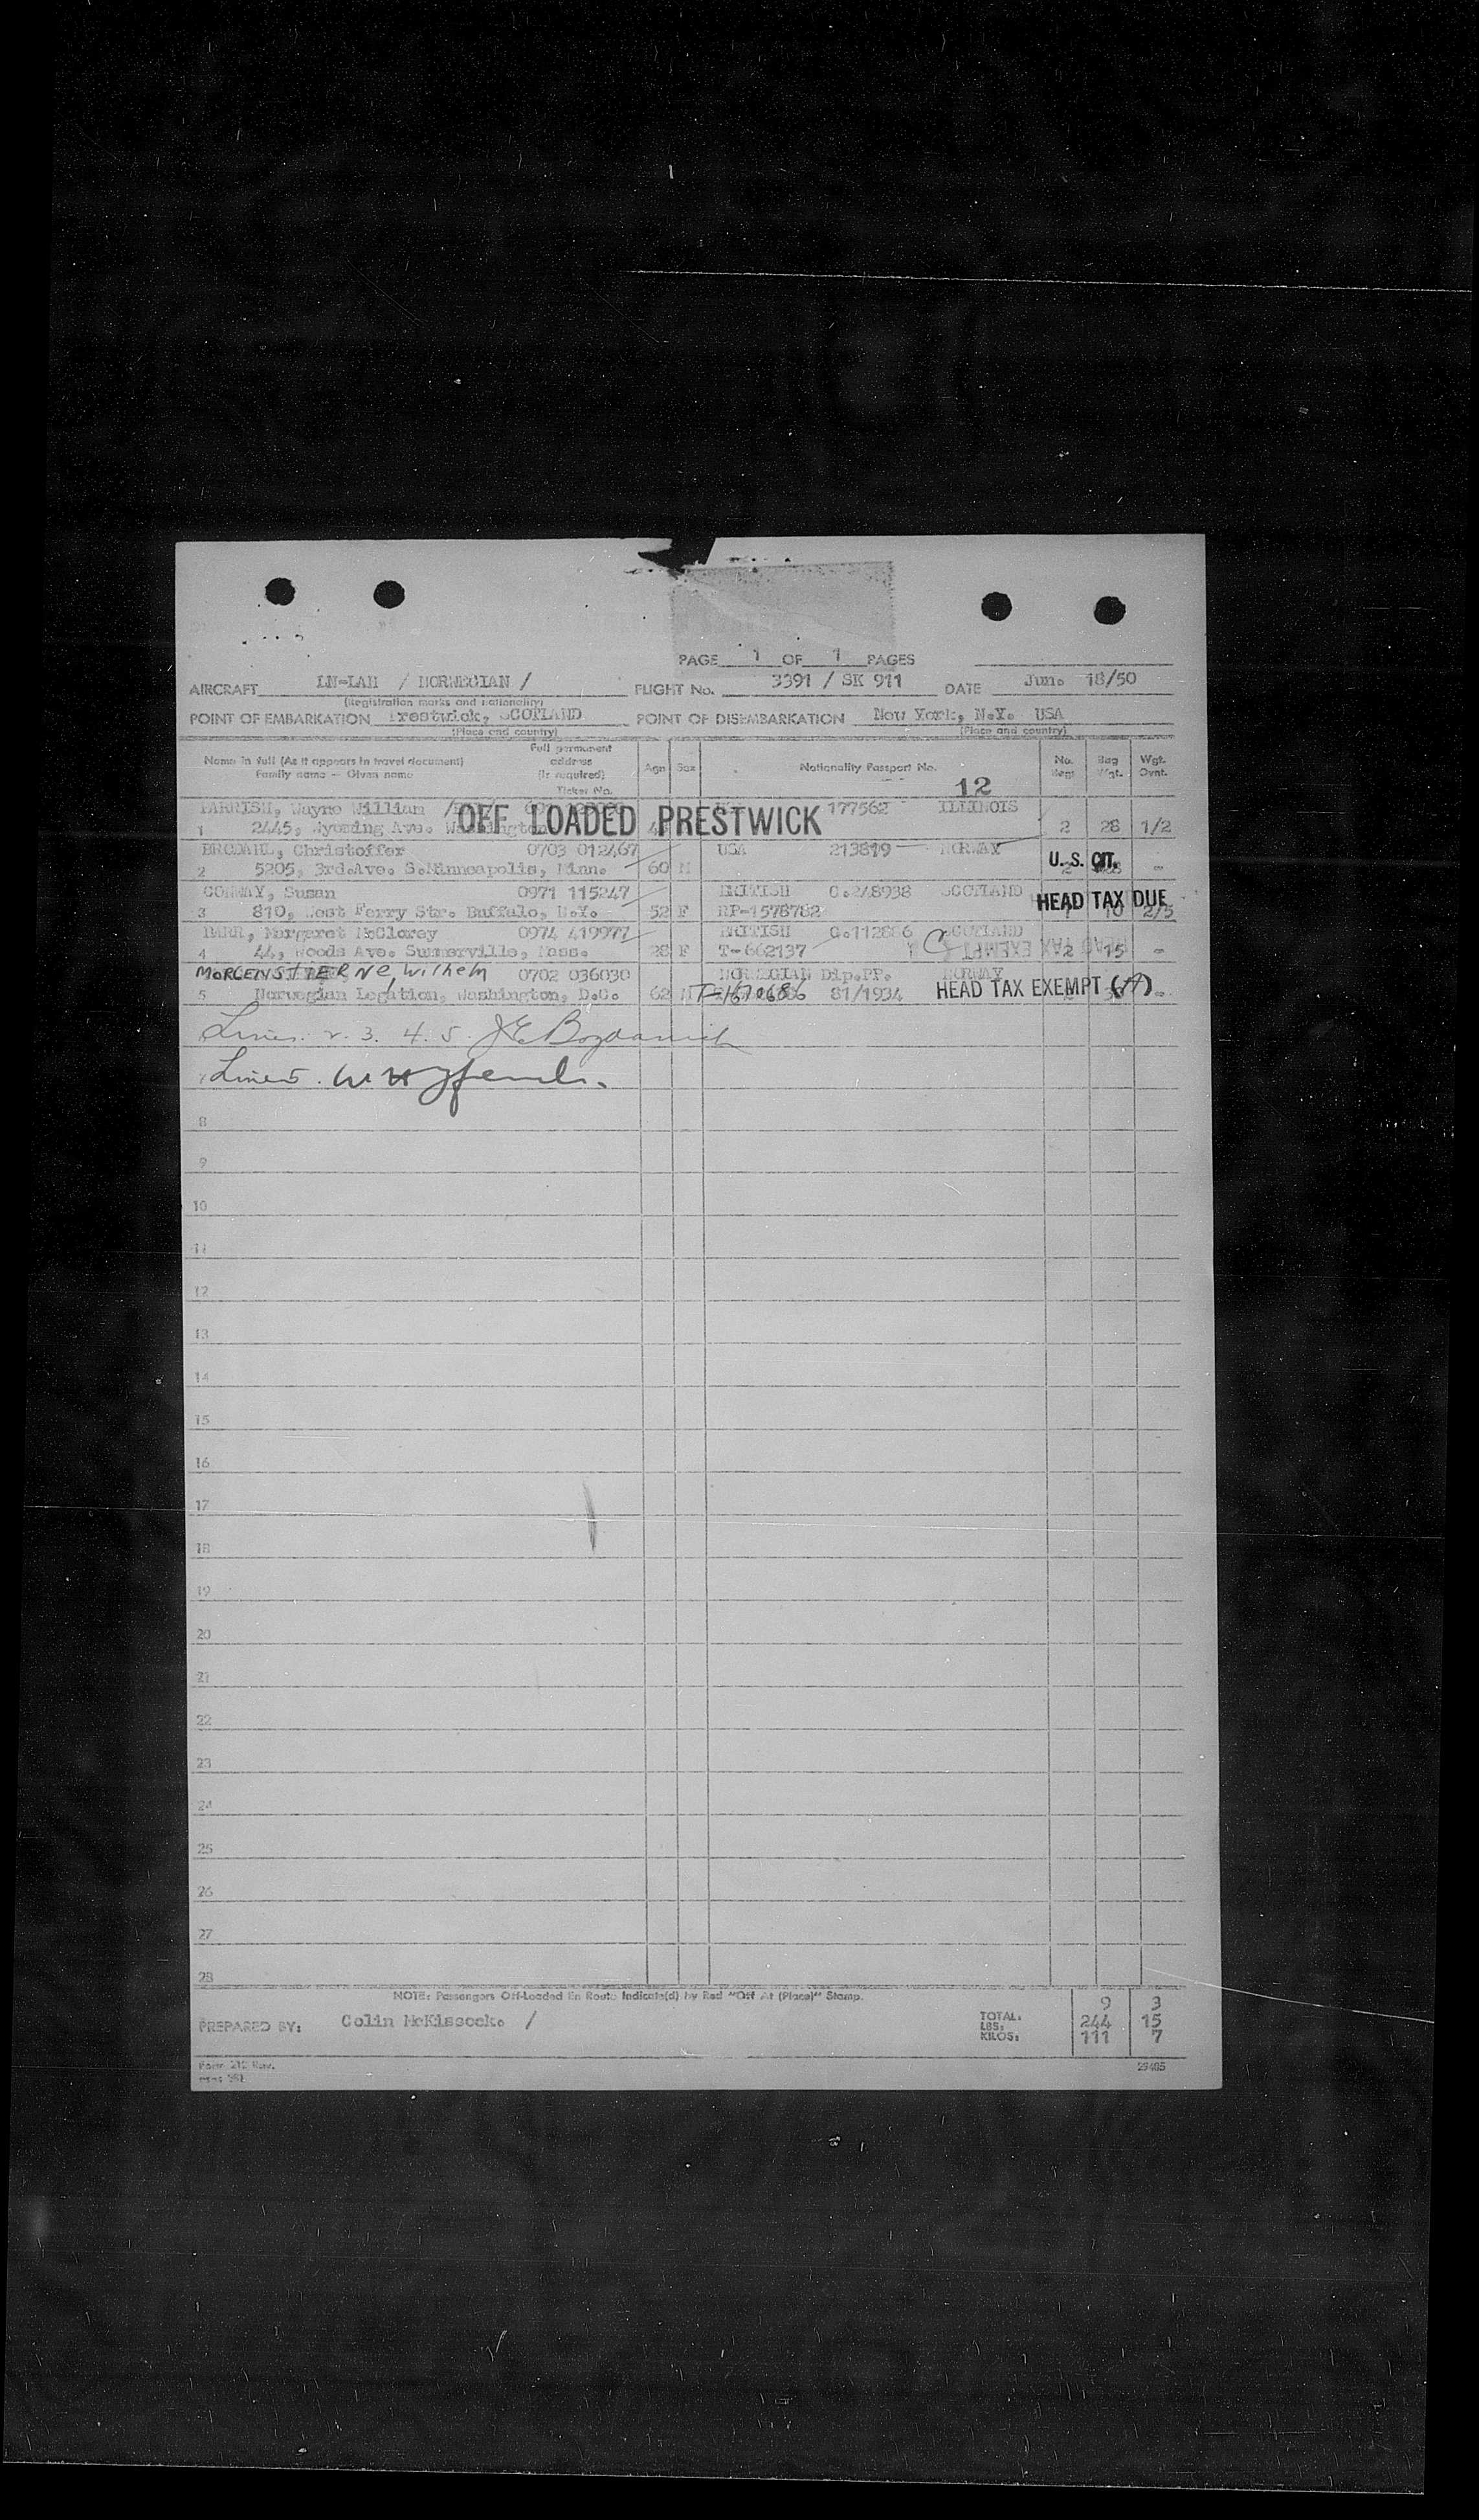 PAGE 1 OF 1 PAGES
AIRCRAFT LN-LAH / NORWEGIAN / FLIGHT No. 3391 / SK 911 DATE June 18/50
(Registration marks and nationality)
POINT OF EMBARKATION Prestwick, SCOTLAND POINT OF DISEMBARKATION New York, N.Y. USA
(Place and country) (Place and country)
Name in full (As it appears in travel document) Family name — Given name Full permanent address (if required) Ticket No. Age Sex Nationality Passport No. No. Bag Wgt. Wgt. Ovnt.
12
PARRISH, Wayne William 177562 ILLINOIS
OFF LOADED PRESTWICK
1 2445, Wyoming Ave. Washington 2 28 1/2
BRODAHL, Christoffer 0703 012467 USA 213819 NORWAY
U. S. CIT.
2 5205, 3rd.Ave. S.Minneapolis, Minn. 60 M -
CONWAY, Susan 0971 115247 BRITISH C.248938 SCOTLAND
HEAD TAX DUE
3 810, West Ferry Str. Buffalo, N.Y. 52 F RP-1578782 10 2/5
BARR, Margaret McClorey 0974 419977 BRITISH C.112886 SCOTLAND
HEAD TAX EXEMPT
4 44, Woods Ave. Summerville, Mass. 28 F T-662137 2 15 -
MORGENSTIERNE, Wilhelm 0702 036030 NORWEGIAN Dip.PP. NORWAY
5 Norwegian Legation, Washington, D.C. 62 M T-1670686 81/1934 HEAD TAX EXEMPT (A) -
Lines 2. 3. 4. 5.
Line 5.
8
9
10
11
12
13
14
15
16
17
18
19
20
21
22
23
24
25
26
27
28
NOTE: Passengers Off-Loaded En Route Indicate(d) by Red "Off At (Place)" Stamp.
9 3
PREPARED BY: Colin McKissock. / TOTAL: LBS: 244 15
KILOS: 111 7
Form 212 Rev. 29485